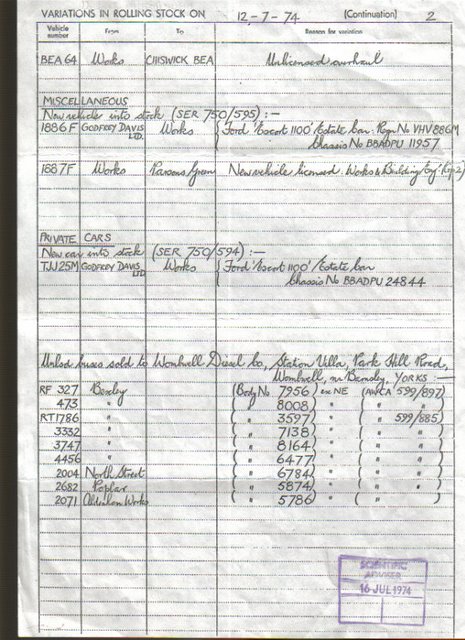 VARIATIONS IN ROLLING STOCK ON 12-7-74 (Continuation) 2
Vehicle number From To Reason for variation
BEA 64 Works CHISWICK BEA Unlicensed overhaul
MISCELLANEOUS
New vehicles into stock (SER 750/595) :—
1886 F GODFREY DAVIS LTD. Works { Ford 'Escort 1100' Estate car. Regn No VHV 886M
Chassis No BBADPU 11957
1887 F Works Parsons Green New vehicle licensed. Works & Building Eng'
PRIVATE CARS
New car into stock (SER 750/594) :—
TJJ 25M GODFREY DAVIS LTD Works { Ford 'Escort 1100' Estate car
Chassis No BBADPU 24844
Unlsd buses sold to Wombwell Diesel Co, Station Villa, Park Hill Road,
Wombwell, nr Barnsley, YORKS :—
RF 327 Bexley (Body No 7956) ex NE (AWCA 599/897)
473 " ( " 8008) " ( " " )
RT1786 " ( " 3597) " ( " 599/885)
3352 " ( " 7138) " ( " " )
3747 " ( " 8164) " ( " " )
4456 " ( " 6477) " ( " " )
2004 North Street ( " 6784) " ( " " )
2682 Poplar ( " 5874) " ( " " )
2071 Aldenham Works ( " 5786) " ( " " )
SCIENTIFIC
ADVISER
16 JUL 1974